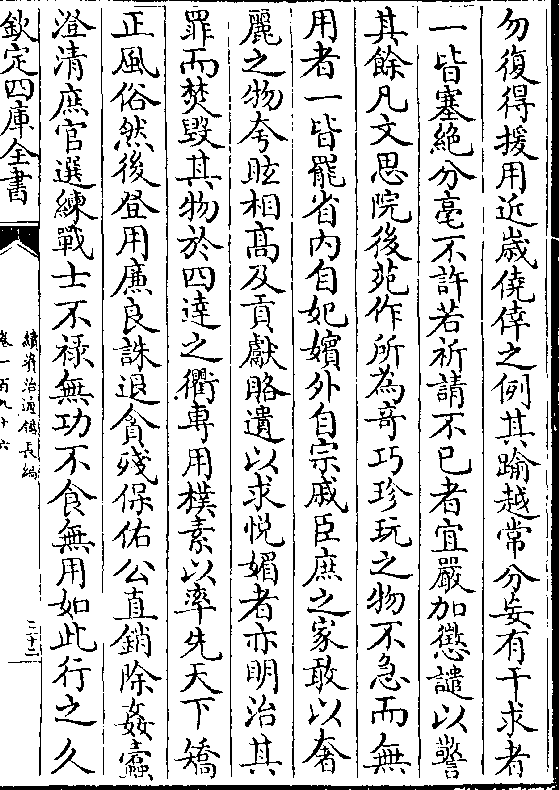 勿復得援用近歳僥倖之例其踰越常分妄有干求者
一皆塞絶分毫不許若祈請不已者宜嚴加懲譴以警
其餘凡文思院後苑作所為竒巧珍玩之物不急而無
用者一皆罷省内自妃嬪外自宗戚臣庶之家敢以奢
麗之物夸眩相髙及貢獻賂遺以求悦媚者亦明治其
罪而焚毁其物於四達之衢専用樸素以率先天下矯
正風俗然後登用廉良誅退貪殘保佑公直銷除姦蠧
澄清庶官選練戰士不禄無功不食無用如此行之久
欽定四庫全書
續資治通鑑長編
卷一百九十六
三十二